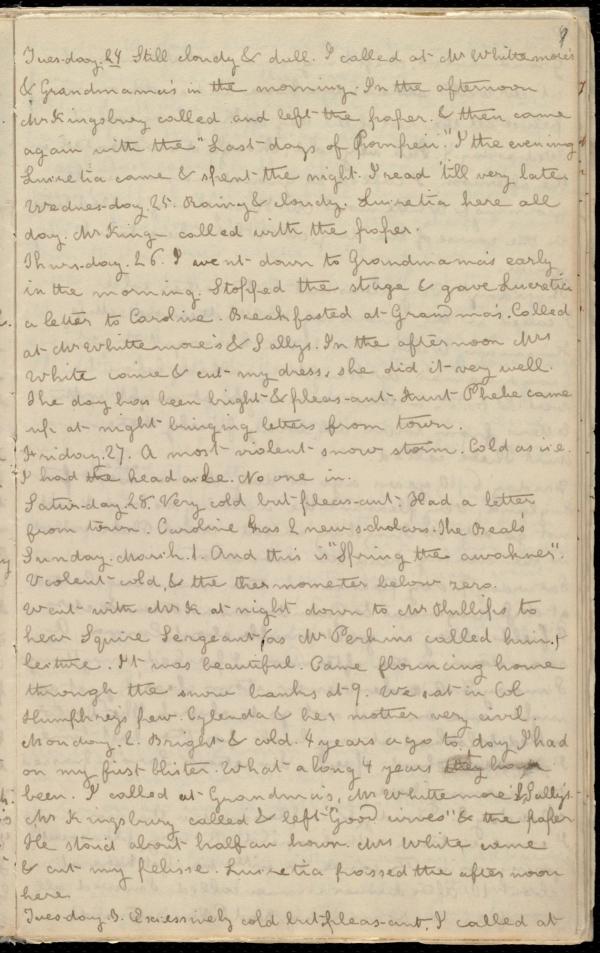 9
Tuesday. 24 Still cloudy & dull. I called at Mr Whittemore's
& Grandmama's in the morning. In the afternoon
Mr Kingsbury called and left the paper. & then came
again with the "Last days of Pompeii." I the evening
Lucretia came & spent the night. I read 'till very late.
Wednesday. 25. Rainy & cloudy. Lucretia here all
day. Mr King— called with the paper.
Thursday. 26. I went down to Grandmama's early
in the morning. Stopped the stage & gave Lucretia
a letter to Caroline. Breakfasted at Grandma's. Called
at Mr Whittemore's & Sallys. In the afternoon Mrs
White came & cut my dress, she did it very well.
The day has been bright & pleasant. Aunt Phebe came
up at night bringing letters from town.
Friday. 27. A most violent snow storm. Cold as ice.
I had the head ache. No one in.
Saturday. 28. Very cold but pleasant. Had a letter
from town. Caroline has 2 new scholars. The Beals
Sunday. March. 1. And this is "Spring the awakner".
Violent cold, & the thermometer below zero.
Went with Mr K at night down to Mr Phillips to
hear Squire Sergeant, (as Mr Perkins called him)
lecture. It was beautiful. Came flouncing home
through the snow banks at 9. We sat in Col
Humphrey's pew. Cylenda & her mother very civil.
Monday. 2. Bright & cold. 4 years ago to day I had
on my first blister. What a long 4 years they have
been. I called at Grandma's, Mr Whittemore's & Sallys.
Mr Kingsbury called & left "Good wives" & the paper
He staid about half an hour. Mrs White came
& cut my pelisse. Lucretia passed the after noon
here.
Tuesday 3. Excessively cold but pleasant. I called at